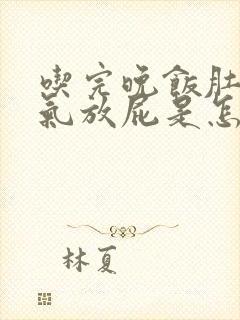 喫完晚飯肚
氣放屁是怎
林夏